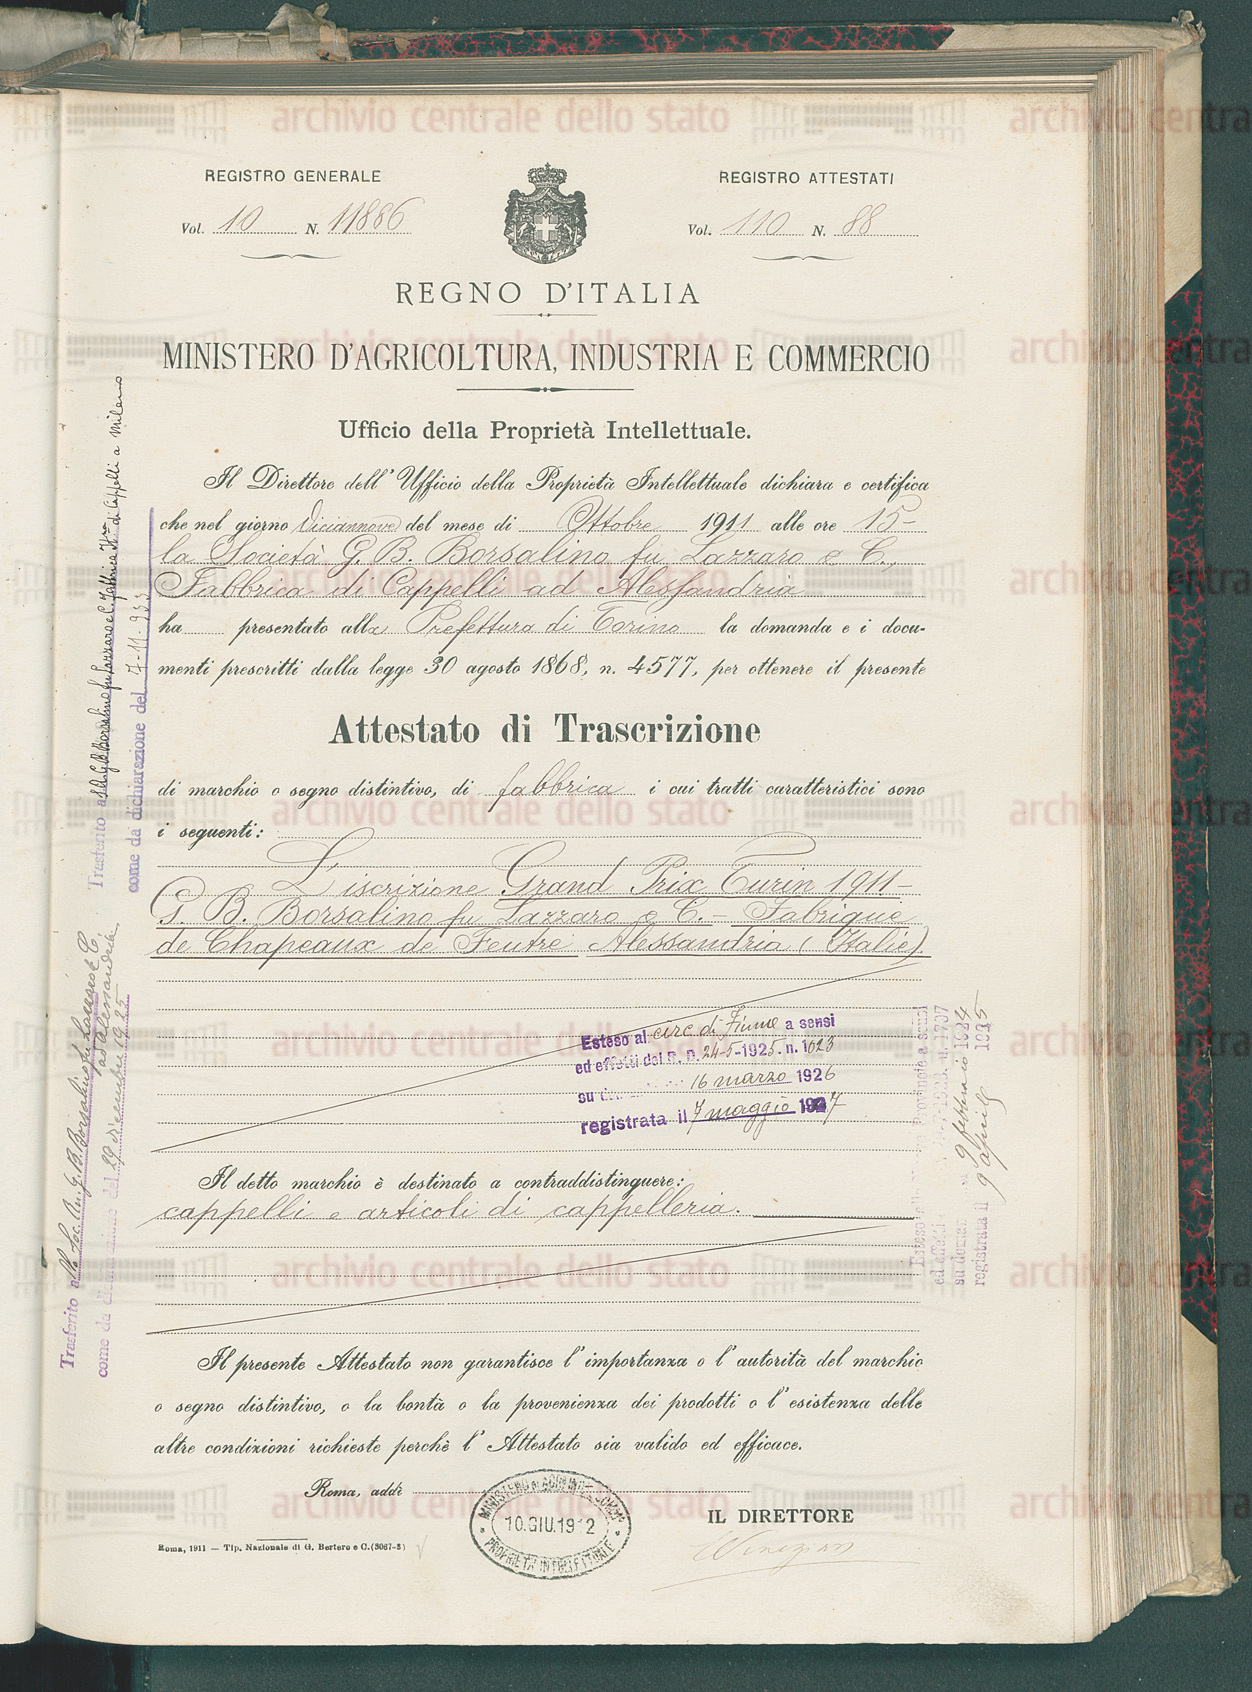 REGISTRO GENERALE
Vol. 10 N. 11886
REGISTRO ATTESTATI
Vol. 110 N. 88
REGNO D'ITALIA
MINISTERO D'AGRICOLTURA, INDUSTRIA E COMMERCIO
Ufficio della Proprietà Intellettuale.
Il Direttore dell'Ufficio della Proprietà Intellettuale dichiara e certifica
che nel giorno diciannove del mese di Ottobre 1911 alle ore 15-
la Società G. B. Borsalino fu Lazzaro e C.,
Fabbrica di Cappelli ad Alessandria
ha presentato alla Prefettura di Torino la domanda e i docu-
menti prescritti dalla legge 30 agosto 1868, n. 4577, per ottenere il presente
Attestato di Trascrizione
di marchio o segno distintivo, di fabbrica i cui tratti caratteristici sono
i seguenti:
L'iscrizione Grand Prix Turin 1911-
G. B. Borsalino fu Lazzaro e C. - Fabrique
de Chapeaux de Feutre Alessandria (Italie).
Esteso al circ. di Fiume a sensi
ed effetti del R. D. 24-5-1925. n. 1023
su 16 marzo 1926
registrata il 7 maggio 1927
Il detto marchio è destinato a contraddistinguere:
cappelli e articoli di cappelleria.
Il presente Attestato non garantisce l'importanza o l'autorità del marchio
o segno distintivo, o la bontà o la provenienza dei prodotti o l'esistenza delle
altre condizioni richieste perchè l'Attestato sia valido ed efficace.
Roma, addì
10.GIU.1912
PROPRIETÀ INTELLETTUALE
IL DIRETTORE
Roma, 1911 — Tip. Nazionale di G. Bertero e C. (3067-3)
Trasferito a S.A. G.B. Borsalino fu Lazzaro e C. Fabbrica di Cappelli a Milano
come da dichiarazione del 7-11-933
Trasferito alla Soc. An. G. B. Borsalino fu Lazzaro e C.
ad Alessandria
come da dichiarazione del 29 dicembre 1925
Esteso alle Provincie a sensi
ed effetti 1923. n. 1707
su doman 9 febbraio 1924
registrata il 9 aprile 1925
archivio centrale dello stato